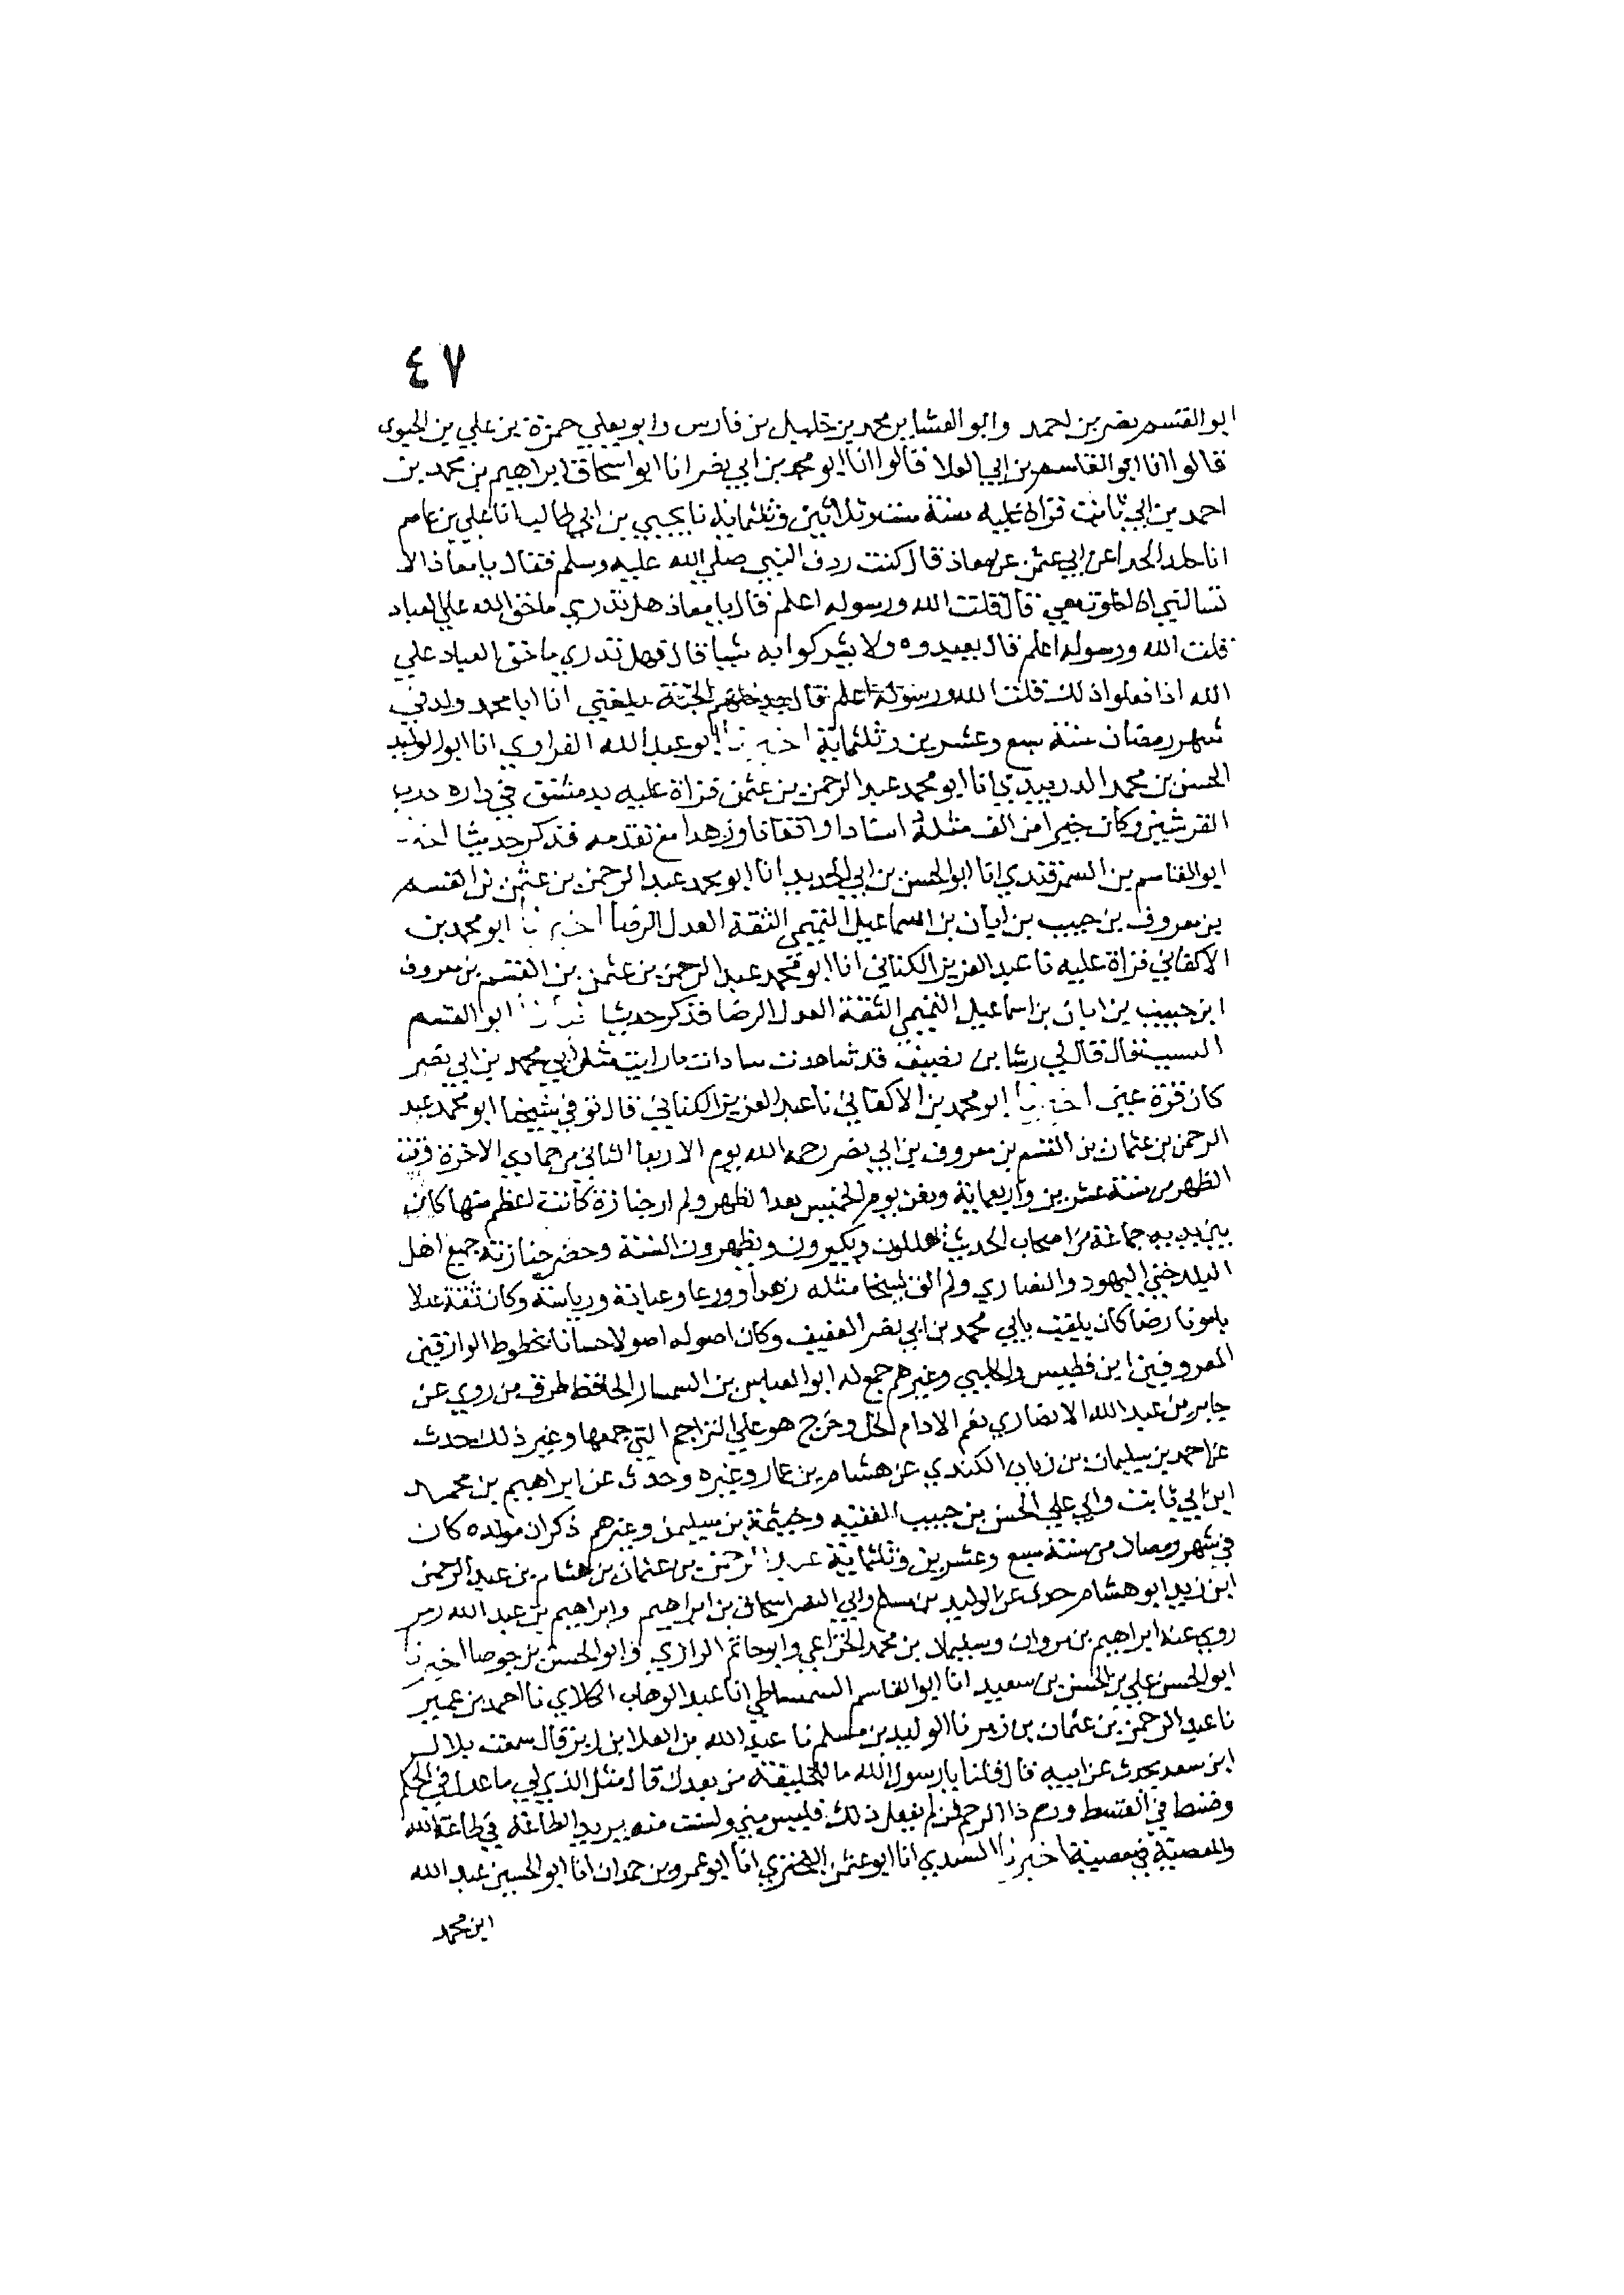 ٤٧
ابو القسم نصر بن احمد وابو العشاير محمد بن خليل بن فارس وابو يعلي حمزة بن علي بن الحبوبي
قالوا انا ابو القاسم بن ابي العلا قالوا انا ابو محمد بن ابي نصر انا ابو اسحاق ابراهيم بن محمد بن
احمد بن ابي ثابت قراة عليه سنة ست وثلاثين وثلثماية نا يحيي بن ابي طالب انا علي بن عاصم
انا خالد الحذا عن ابي عثمن عن معاذ قال كنت ردف النبي صلي الله عليه وسلم فقال يا معاذ الا
تسالني اذا خلوت معي قال قلت الله ورسوله اعلم قال يا معاذ هل تدري ما حق الله علي العباد
قلت الله ورسوله اعلم قال يعبدوه ولا يشركوا به شيا قال فهل تدري ما حق العباد علي
الله اذا فعلوا ذلك قلت الله ورسوله اعلم قال يدخلهم الجنة بلغني ان ابا محمد ولد في
شهر رمضان سنة سبع وعشرين وثلثماية اخبرنا ابو عبد الله الفراوي انا ابو الوليد
الحسن بن محمد الدربندي انا ابو محمد عبد الرحمن بن عثمن قراة عليه بدمشق في داره درب
القرشيين وكان خيرا من الف مثله اسنادا واتقانا وزهدا مع تقدمه فذكر حديثا اخبرنا
ابو القاسم بن السمرقندي انا ابو الحسن بن ابي الحديد انا ابو محمد عبد الرحمن بن عثمن بن القسم
بن معروف بن حبيب بن ابان بن اسماعيل التميمي الثقة العدل الرضا اخبرنا ابو محمد بن
الاكفاني قراة عليه نا عبد العزيز الكتاني انا ابو محمد عبد الرحمن بن عثمن بن القسم بن معروف
ابن حبيب بن ابان بن اسماعيل التميمي الثقة العدل الرضا فذكر حديثا اخبرنا ابو القسم
النسيب قال قال لي رشا بن نظيف قد شاهدت سادات ما رايت مثل ابي محمد بن ابي نصر
كان قرة عين اخبرنا ابو محمد بن الاكفاني نا عبد العزيز الكتاني قال توفي شيخنا ابو محمد عبد
الرحمن بن عثمان بن القسم بن معروف بن ابي نصر رحمه الله يوم الاربعا الثاني من جمادي الاخرة وقت
الظهر من سنة عشرين واربعماية ودفن يوم الخميس بعد الظهر ولم ار جنازة كانت اعظم منها كان
بين يديه جماعة من اصحاب الحديث يهللون ويكبرون ويظهرون السنة وحضر جنازته جميع اهل
البلد حتي اليهود والنصاري ولم الق شيخا مثله زهدا وورعا وعبادة ورياسة وكان ثقة عدلا
مامونا رضا كان يلقب بابي محمد بن ابي نصر العفيف وكان اصوله اصولا حسانا بخطوط الوراقين
المعروفين ابن فطيس والحلبي وغيرهم جمع له ابو العباس بن السمسار الحافظ طرق من روي عن
جابر بن عبد الله الانصاري نعم الادام الخل وخرج هو علي التراجم التي جمعها وغير ذلك حدث
عن احمد بن سليمان بن زبان الكندي عن هشام بن عمار وغيره وحدث عن ابراهيم بن محمد
ابن ابي ثابت وابي علي الحسن بن حبيب الفقيه وخيثمة بن سليمن وغيرهم ذكر ان مولده كان
في شهر رمضان من سنة سبع وعشرين وثلثماية عبد الرحمن بن عثمان بن هشام بن عبد الرحمن
ابن زبر ابو هشام حدث عن الوليد بن مسلم وابي النضر اسحاق بن ابراهيم وابراهيم بن عبد الله زبر
روي عنه ابراهيم بن مروان وسليمان بن محمد الخزاعي وابو حاتم الرازي وابو الحسن بن جوصا اخبرنا
ابو الحسن علي بن الحسن بن سعيد انا ابو القاسم السمساطي انا عبد الوهاب الكلابي نا احمد بن عمير
نا عبد الرحمن بن عثمان بن زبر نا الوليد بن مسلم نا عبد الله بن العلا ابن زبر قال سمعت بلال
ابن سعد يحدث عن ابيه قال قلنا يا رسول الله ما للخليفة من بعدك قال مثل الذي لي ما عدل في الحكم
وقسط في القسط ورحم ذا الرحم فمن لم يفعل ذلك فليس مني ولست منه يريد الطاعة في طاعة الله
والمعصية في معصية اخبرنا السيدي انا ابو عثمن البحيري انا ابو عمرو بن حمدان انا ابو الحسين عبد الله
ابن محمد